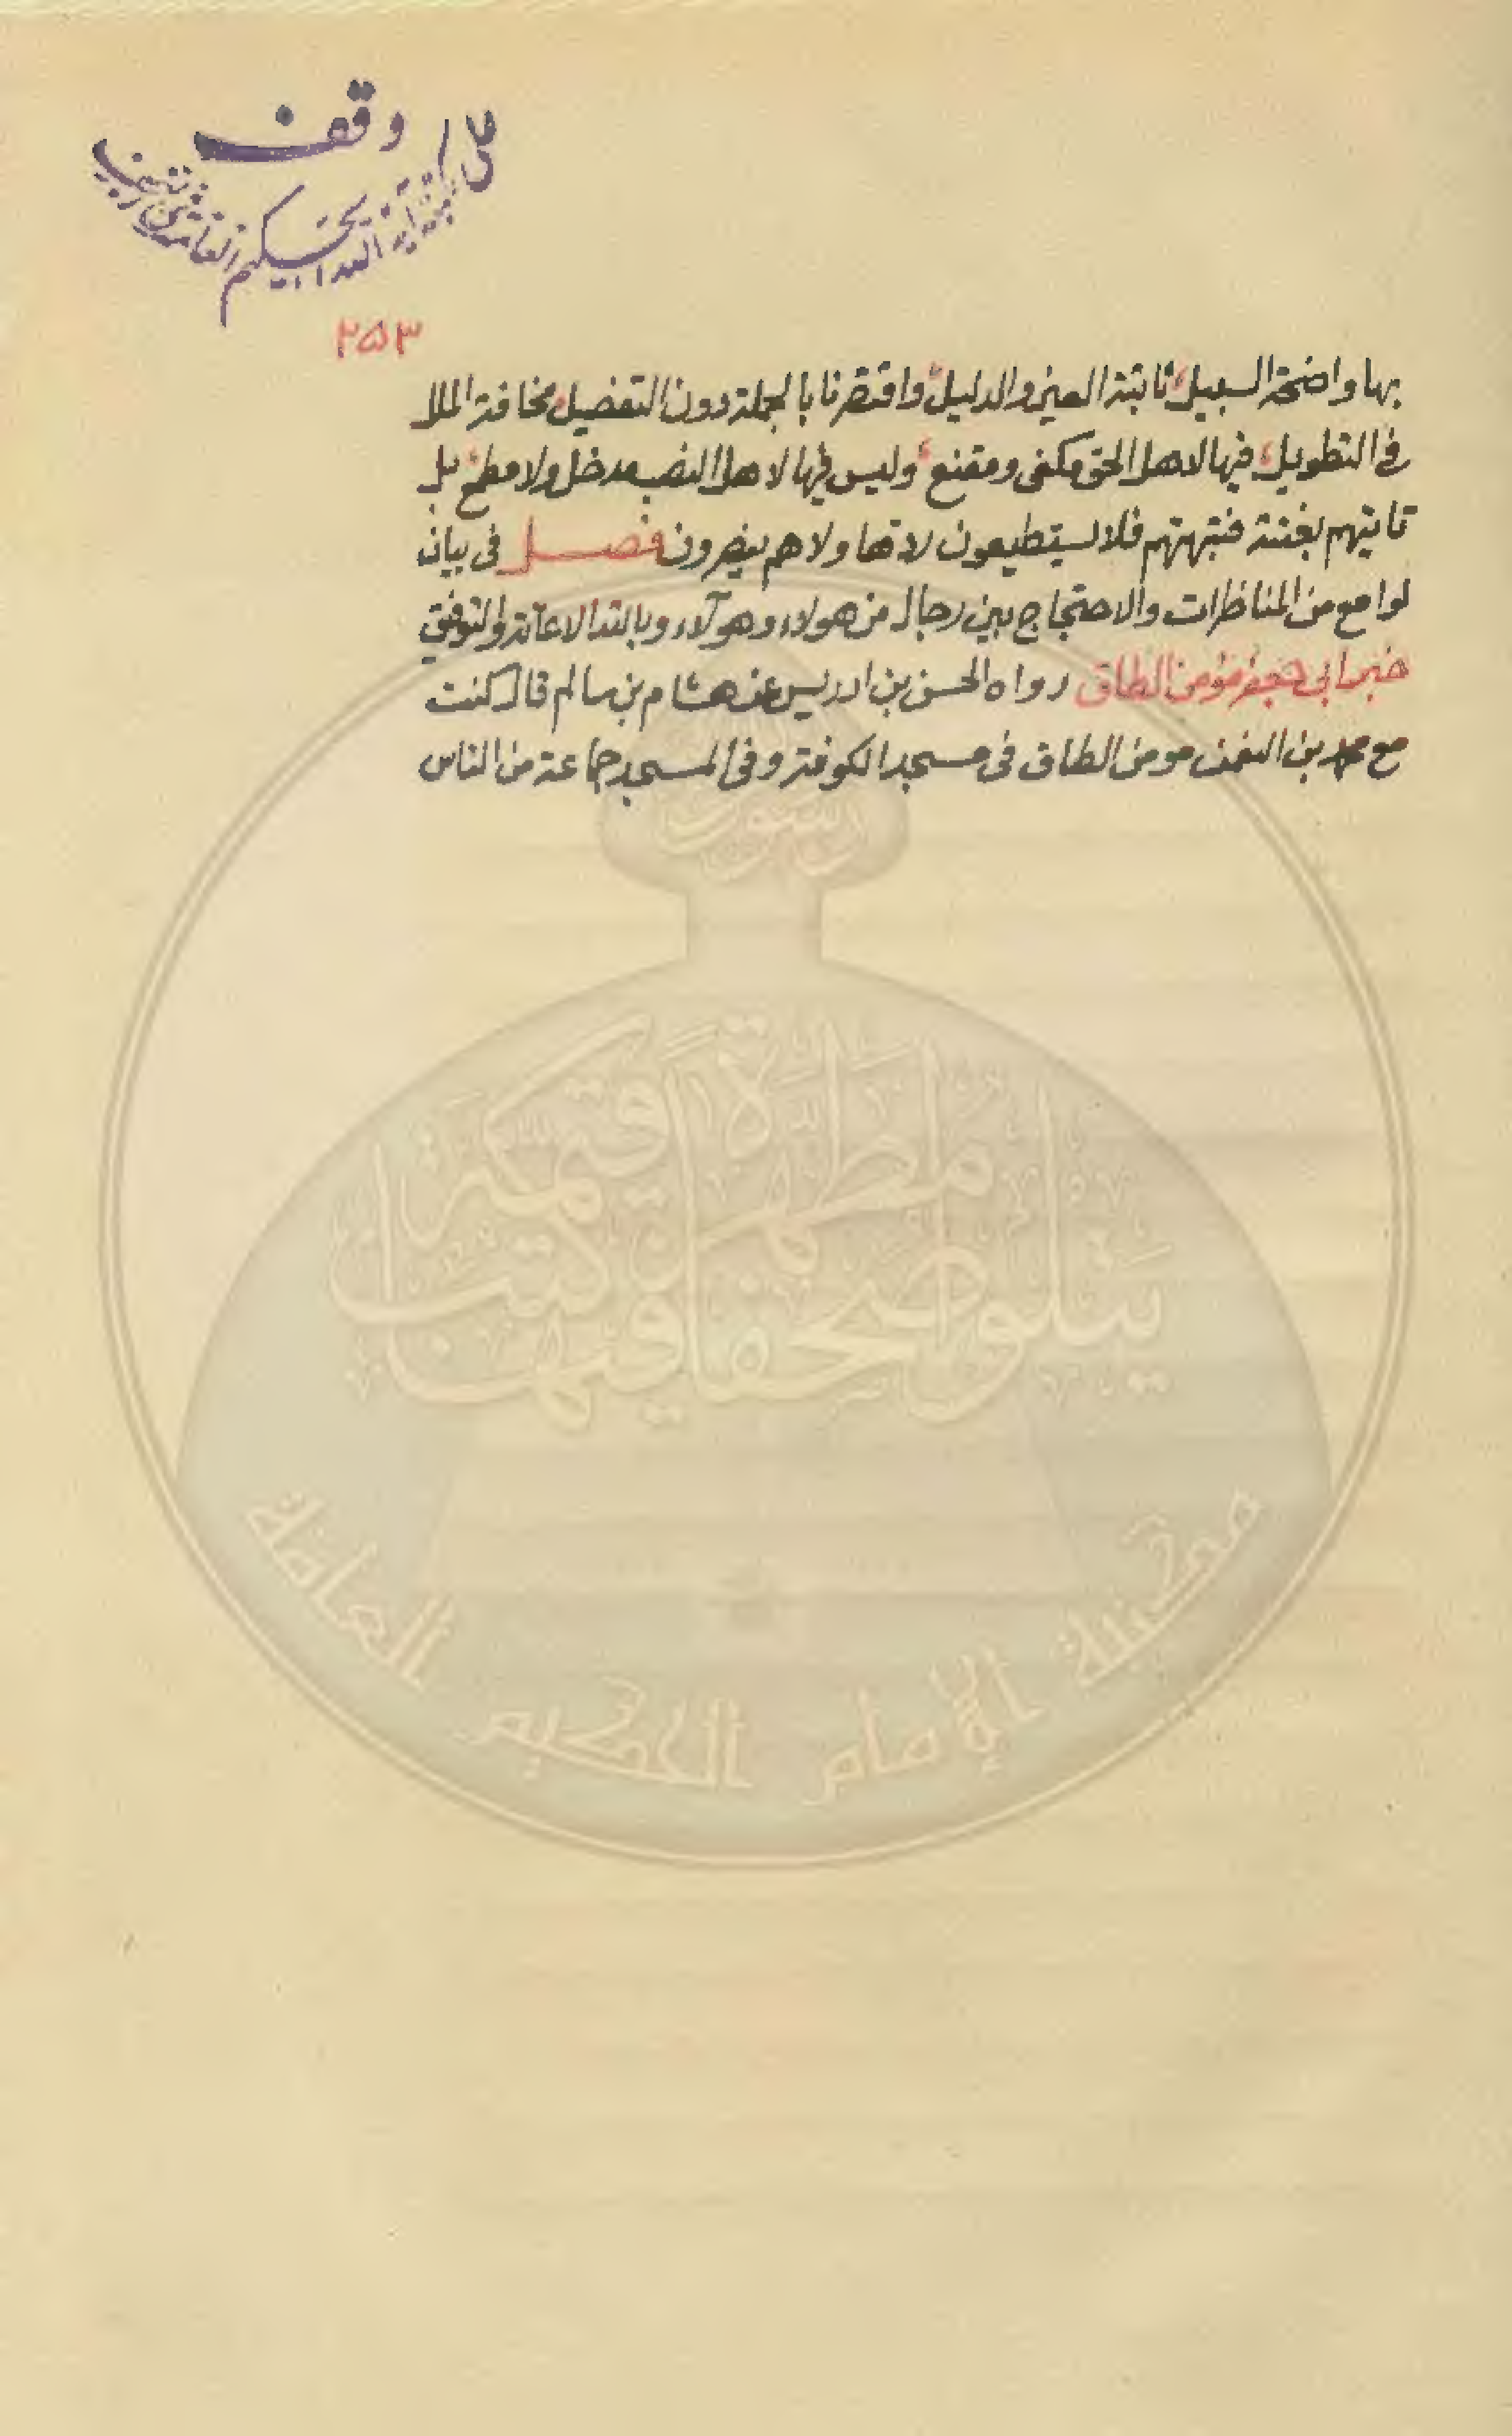 وقف
على مكتبة آية الله الحكيم العامة
٢٥٣
بها واضحة السبيل ثابتة العين والدليل واقتصرنا بالجملة دون التفصيل مخافة الملل
في التطويل فيها لاهل الحق مكفى ومقنع وليس فيها لاهل النصب مدخل ولا مطمع بل
تاتيهم بغتة فتبهتهم فلا يستطيعون ردها ولا هم ينصرون فصل في بيان
لوامع من المناظرات والاحتجاج بين رجال من هولاء وهولآء وبالله الاعانة والتوفيق
خبر ابي جعفر مؤمن الطاق رواه الحسن بن ادريس عن هشام بن سالم قال كنت
مع محمد بن النعمن مومن الطاق في مسجد الكوفة وفي المسجد جماعة من الناس
رسول
يتلو صحفا مطهرة فيها كتب قيمة
مكتبة الإمام الحكيم العامة